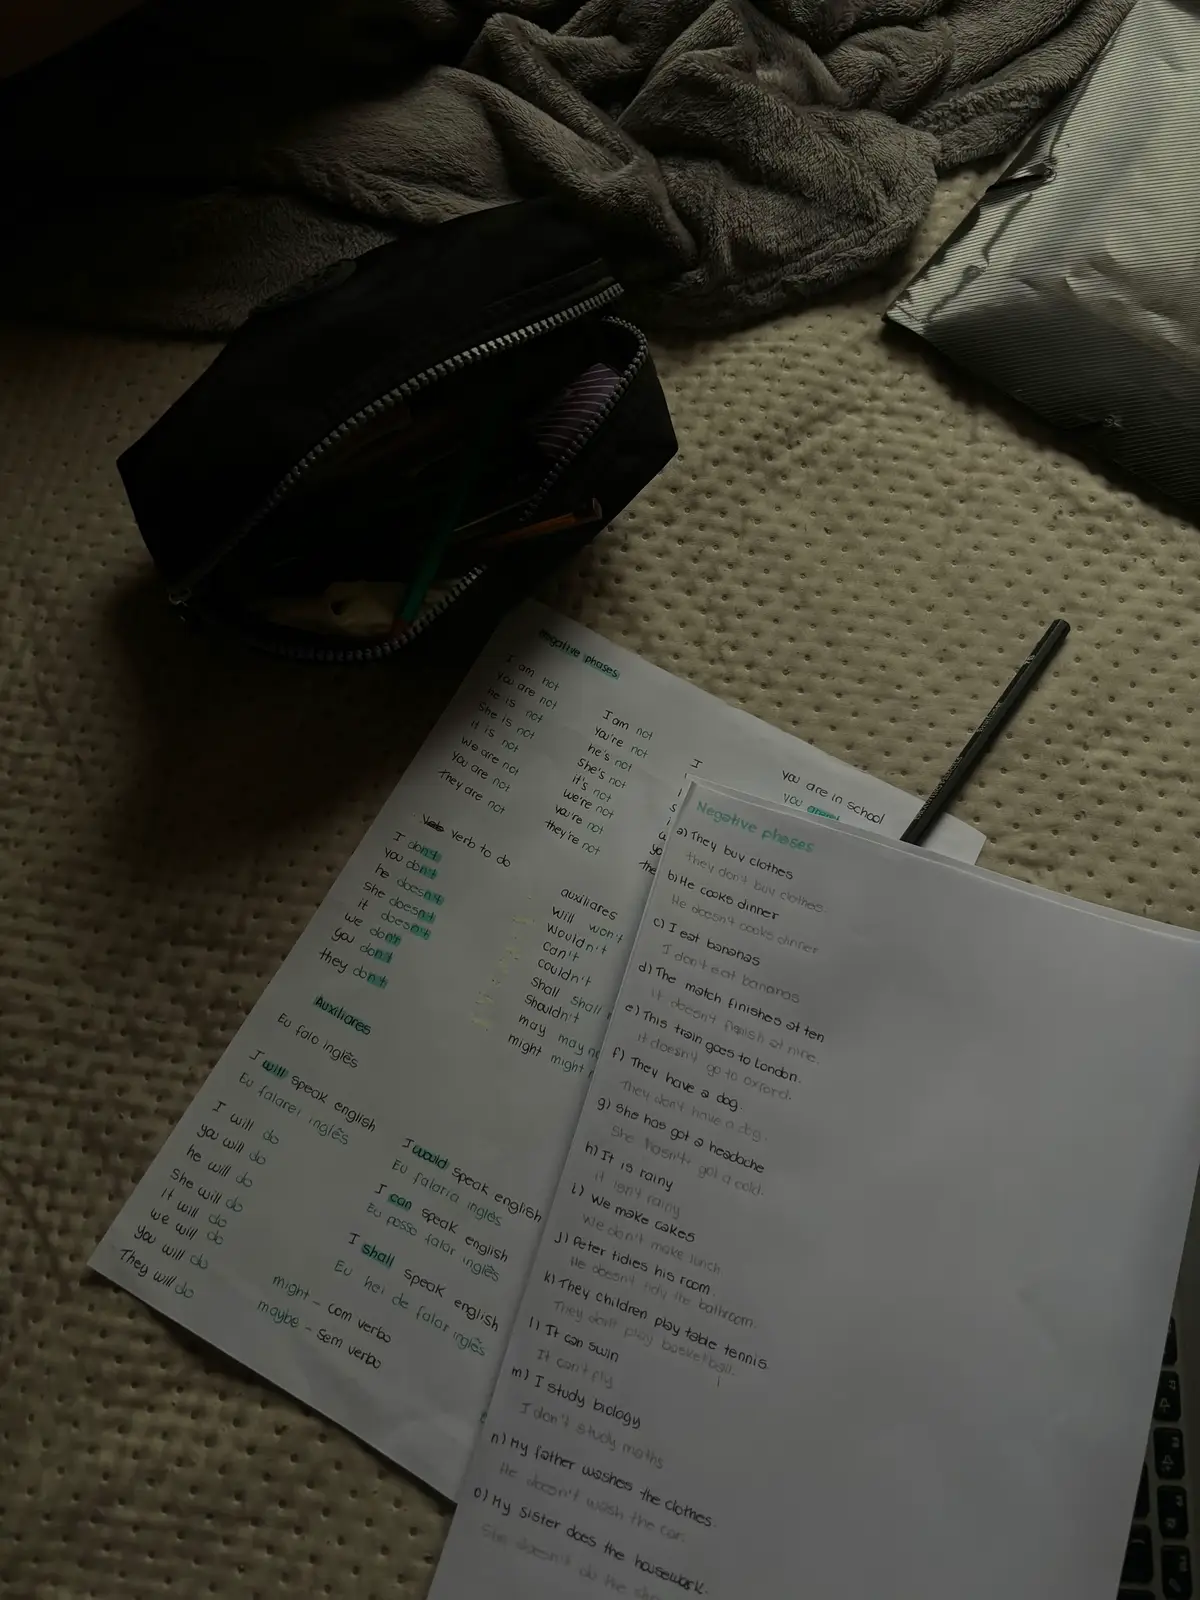 negative phases
I am not
you are not
he is not
She is not
it is not
we are not
you are not
they are not
I am not
you're not
he's not
She's not
it's not
we're not
you're not
they're not
I
you are in school
you
verb to do
I don't
you don't
he doesn't
she doesn't
it doesn't
we don't
you don't
they don't
auxiliares
will won't
wouldn't
can't
couldn't
shall shall
shouldn't
may may
might might
Auxiliares
Eu falo inglês
I will speak english
Eu falarei inglês
I will do
you will do
he will do
She will do
it will do
we will do
you will do
They will do
I would speak english
Eu falaria inglês
I can speak english
Eu posso falar inglês
I shall speak english
Eu hei de falar inglês
might - com verbo
maybe - sem verbo
Negative phases
a) They buy clothes
they don't buy clothes.
b) He cooks dinner
He doesn't cooks dinner
c) I eat bananas
I don't eat bananas
d) The match finishes at ten
it doesn't finish at nine.
e) This train goes to London.
it doesn't go to oxford.
f) They have a dog.
They don't have a dog.
g) She has got a headache
She hasn't got a cold.
h) It is rainy
it isn't rainy
i) We make cakes
we don't make lunch
j) Peter tidies his room.
He doesn't tidy the bathroom.
k) They children play table tennis.
They don't play basketball.
l) It can swin
It can't fly
m) I study biology
I don't study maths
n) My father washes the clothes.
He doesn't wash the car.
o) My sister does the housework.
She doesn't do the